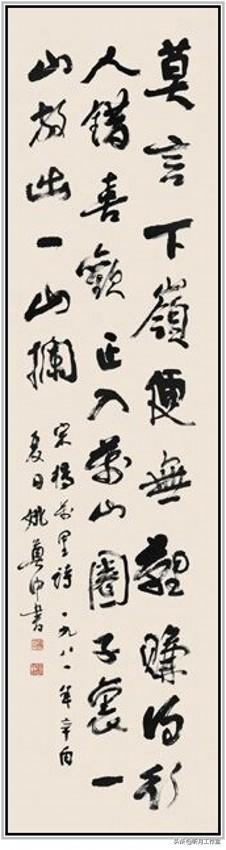 莫言下嶺便無難賺得行
人錯喜歡正入萬山圈子裏一
山放出一山攔
宋楊萬里詩 一九八一年辛酉
夏日姚奠中書